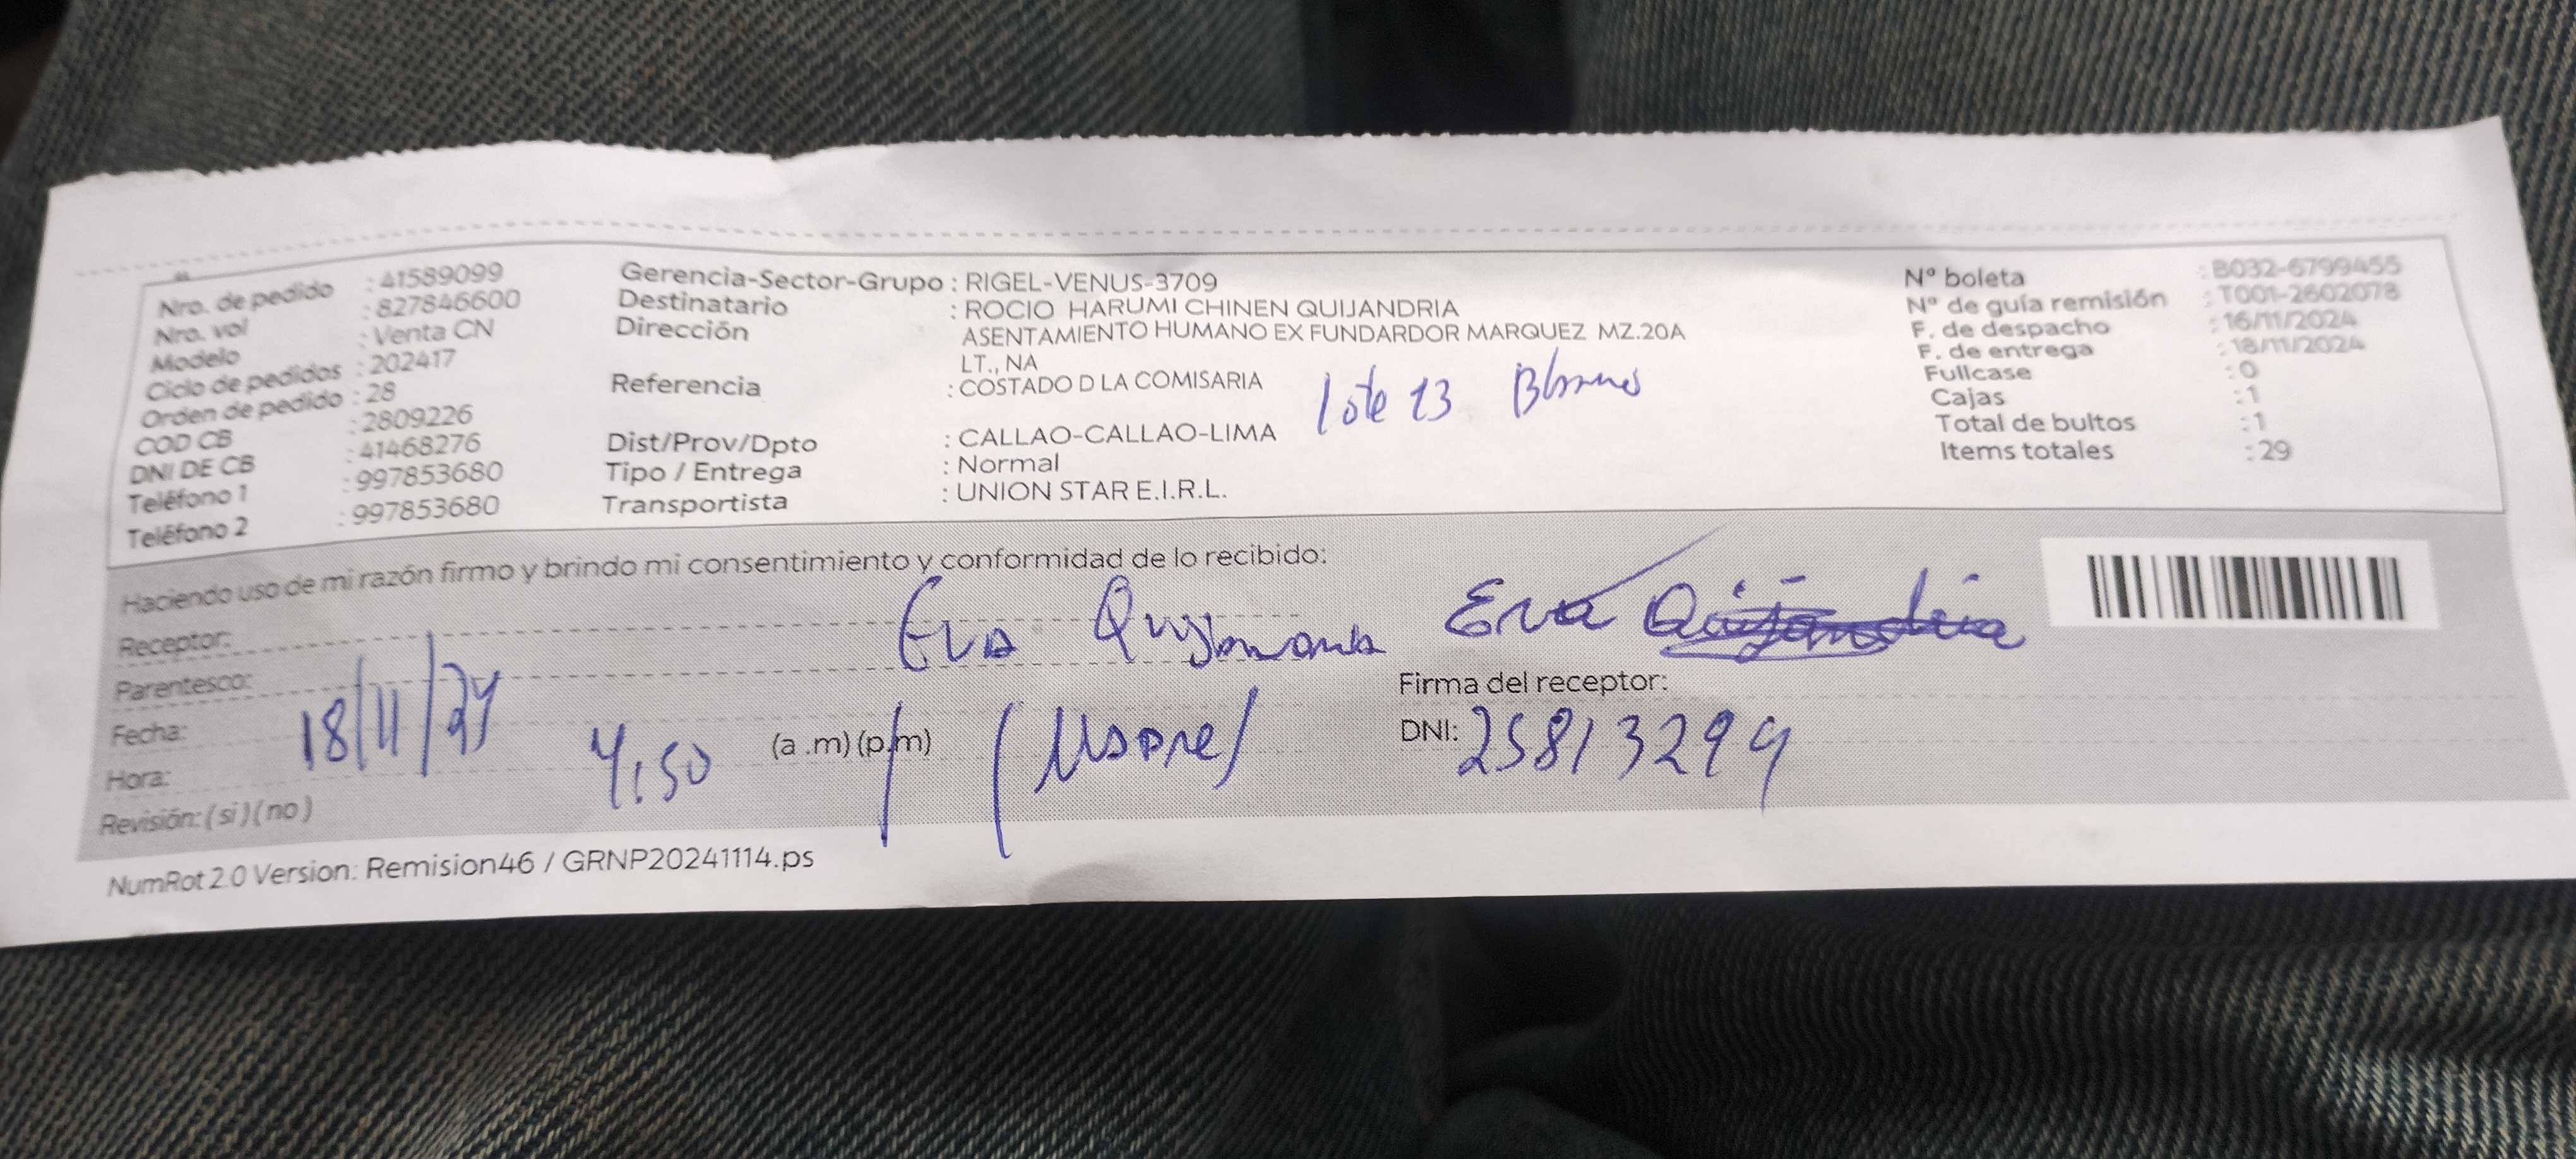 Nro. de pedido : 41589099
Nro. vol : 827846600
Modelo : Venta CN
Ciclo de pedidos : 202417
Orden de pedido : 28
COD CB : 2809226
DNI DE CB : 41468276
Teléfono 1 : 997853680
Teléfono 2 : 997853680
Gerencia-Sector-Grupo : RIGEL-VENUS-3709
Destinatario : ROCIO HARUMI CHINEN QUIJANDRIA
Dirección ASENTAMIENTO HUMANO EX FUNDARDOR MARQUEZ MZ.20A
LT., NA
Referencia : COSTADO D LA COMISARIA
lote 13
Dist/Prov/Dpto : CALLAO-CALLAO-LIMA
Tipo / Entrega : Normal
Transportista : UNION STAR E.I.R.L.
Nº boleta : B032-6799455
Nº de guía remisión : T001-2602078
F. de despacho : 16/11/2024
F. de entrega : 18/11/2024
Fullcase : 0
Cajas : 1
Total de bultos : 1
Items totales : 29
Haciendo uso de mi razón firmo y brindo mi consentimiento y conformidad de lo recibido:
Receptor: Eva
Eva Quijandria
Parentesco:
Firma del receptor:
Fecha: 18/11/24
DNI: 25813299
Hora: 4:50 (a .m) (p.m)
Revisión: ( si ) ( no )
NumRot 2.0 Version: Remision46 / GRNP20241114.ps